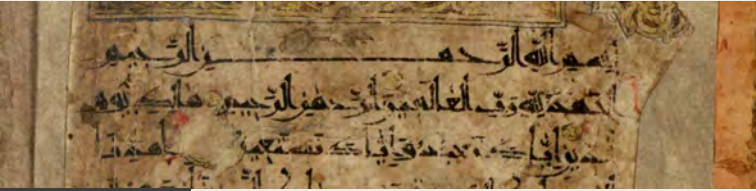 بسم الله الرحمن الرحيم
الحمد لله رب العالمين الرحمن الرحيم ملك يوم
الدين اياك نعبد واياك نستعين اهدنا